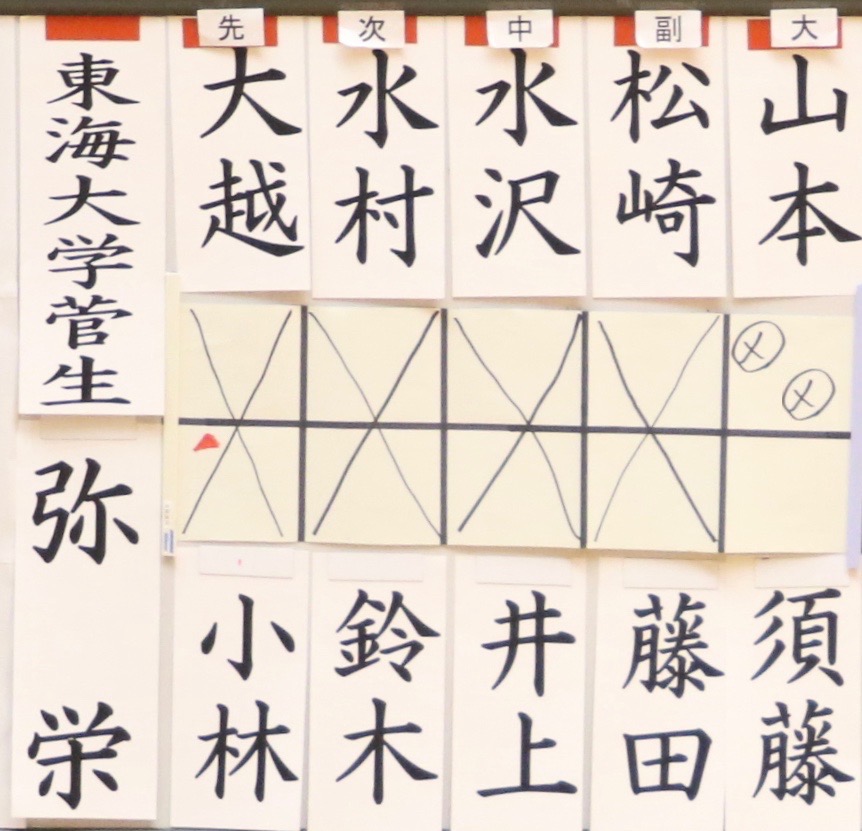 先 次 中 副 大
東海大学菅生
大越
水村
水沢
松崎
山本
メ
メ
弥栄
小林
鈴木
井上
藤田
須藤